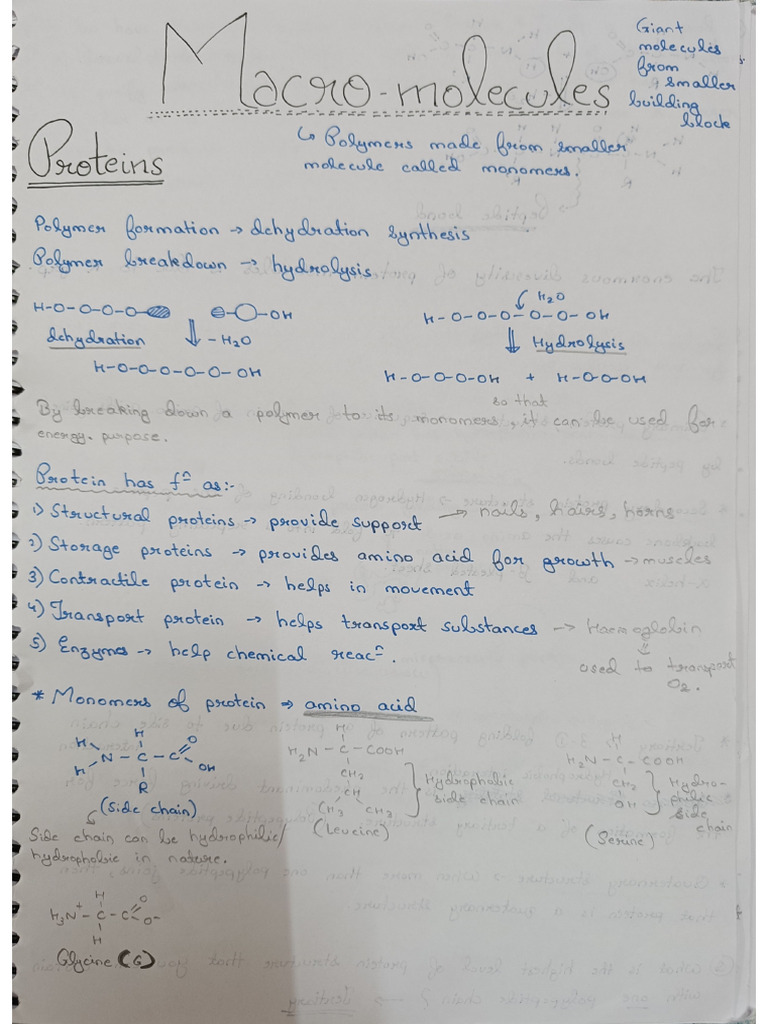 Macro-molecules
Giant
molecules
from
smaller
building
block
↳ Polymers made from smaller
molecule called monomers.
Proteins
Polymer formation → dehydration synthesis
Polymer breakdown → hydrolysis
H-O-O-O-O- -O-OH
dehydration ⇓ - H2O
H-O-O-O-O-O-OH
H2O
H-O-O-O-O-O-OH
⇓ Hydrolysis
H-O-O-O-OH + H-O-O-OH
so that
By breaking down a polymer to its monomers, it can be used for
energy. purpose.
Protein has fn as:-
1) Structural proteins → provide support → nails, hairs, horns
2) Storage proteins → provides amino acid for growth → muscles
3) Contractile protein → helps in movement
4) Transport protein → helps transport substances → Haemoglobin
⇓
used to transport
O2.
5) Enzymes → help chemical reacn.
* Monomers of protein ⇒ amino acid
H
H
H
N - C - C
O
OH
R
(Side chain)
Side chain can be hydrophilic/
hydrophobic in nature.
H
H2N - C - COOH
CH2
CH
CH3 CH3
(Leucine)
Hydrophobic
side chain
H
H2N - C - COOH
CH2
OH
(Serine)
Hydro-
philic
side
chain
H
H3N+ - C - C
O
O-
H
Glycine (G)